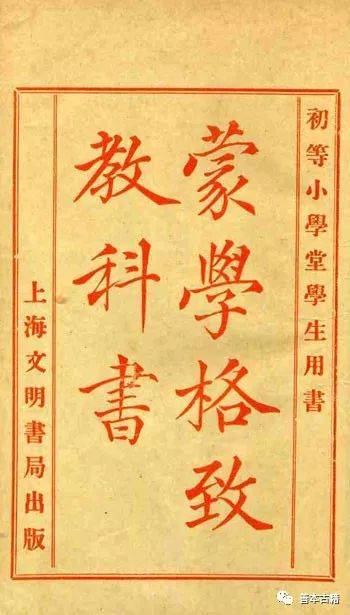 初等小學堂學生用書
蒙學格致
教科書
上海文明書局出版
善本古籍